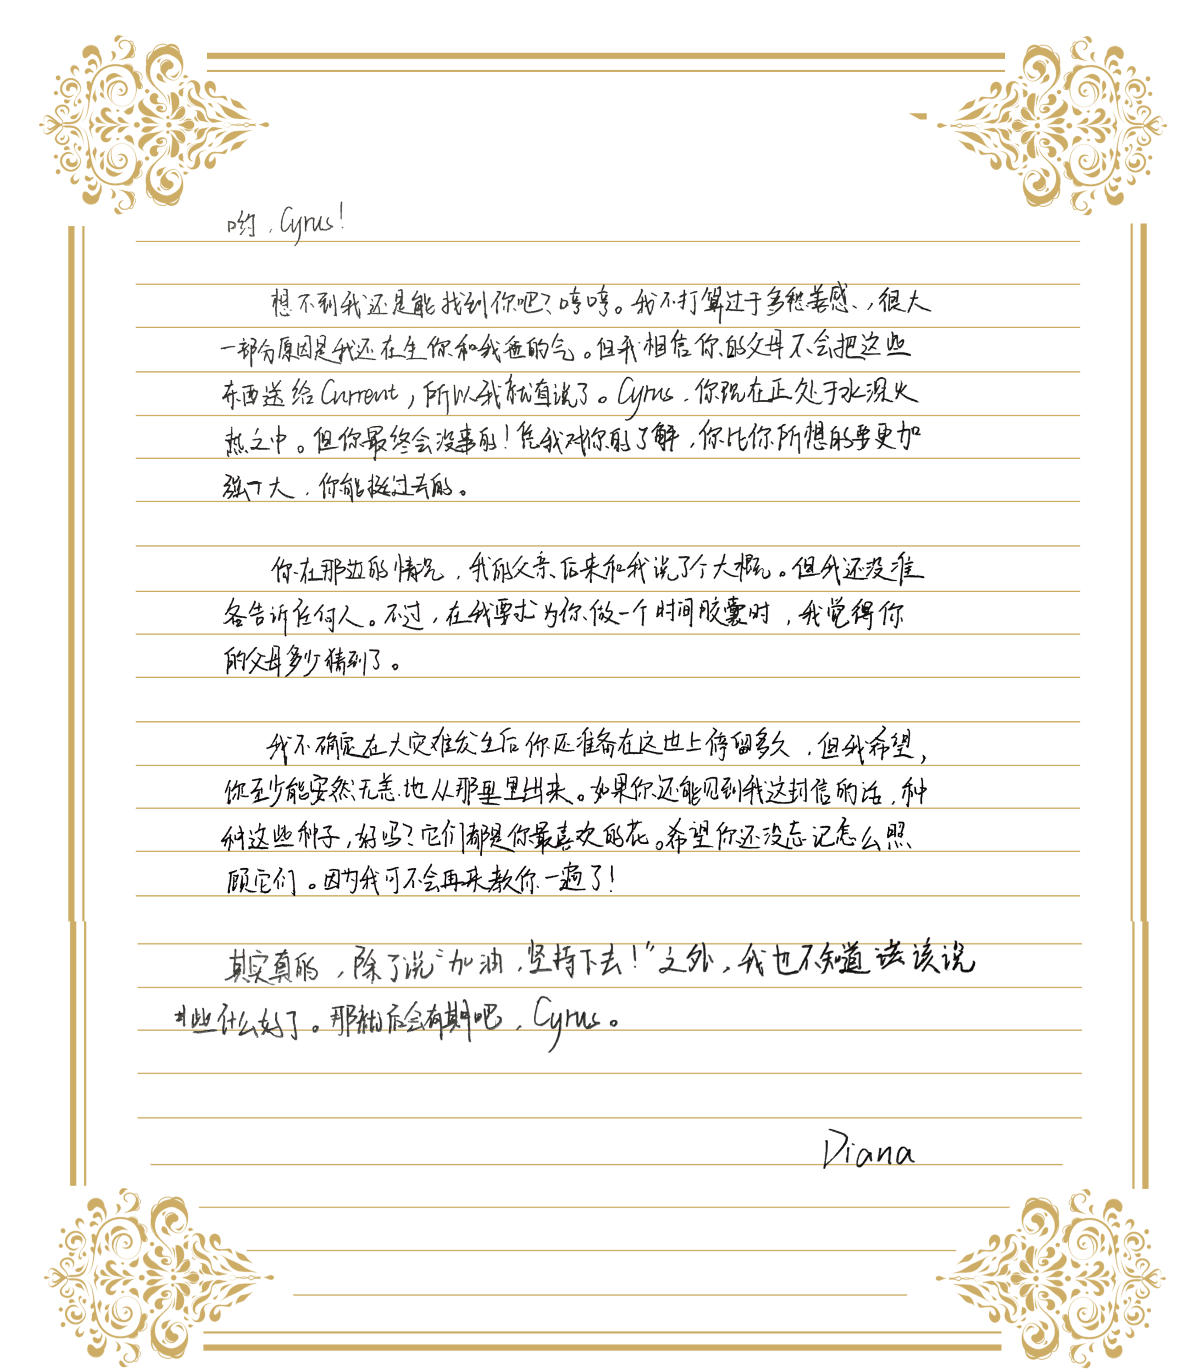 哟，Cyrus！
想不到我还是能找到你吧？哼哼。我不打算过于多愁善感，很大
一部分原因是我还在生你和我爸的气。但我相信你的父母不会把这些
东西送给Current，所以我就直说了。Cyrus，你现在正处于水深火
热之中。但你最终会没事的！凭我对你的了解，你比你所想的要更加
强大，你能挺过去的。
你在那边的情况，我的父亲后来和我说了个大概。但我还没准
备告诉任何人。不过，在我要求为你做一个时间胶囊时，我觉得你
的父母多少猜到了。
我不确定在大灾难发生后你还准备在这边上停留多久，但我希望，
你至少能安然无恙地从那里出来。如果你还能见到我这封信的话，种
种这些种子，好吗？它们都是你最喜欢的花。希望你还没忘记怎么照
顾它们。因为我可不会再来教你一遍了！
其实真的，除了说“加油，坚持下去！”之外，我也不知道该说
些什么好了。那就后会有期吧，Cyrus。
Diana